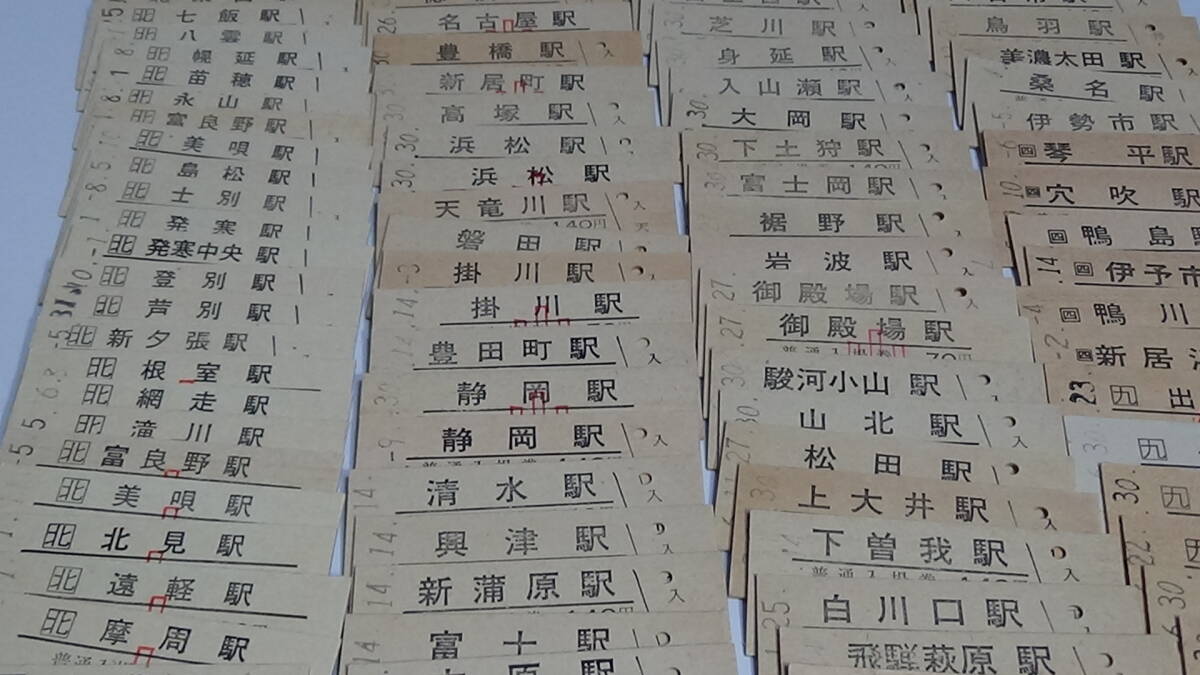 北 七飯駅
北 八雲駅
北 幌延駅
北 苗穂駅
北 永山駅
北 富良野駅
北 美唄駅
北 島松駅
北 士別駅
北 発寒駅
北 発寒中央駅
北 登別駅
北 芦別駅
北 新夕張駅
北 根室駅
北 網走駅
滝川駅
北 富良野駅
北 美唄駅
北 北見駅
北 遠軽駅
北 摩周駅
名古屋駅
豊橋駅
新居町駅
高塚駅
浜松駅
浜松駅
天竜川駅
140円
磐田駅
掛川駅
掛川駅
豊田町駅
静岡駅
静岡駅
清水駅
興津駅
新蒲原駅
140円
富士駅
芝川駅
身延駅
入山瀬駅
大岡駅
下土狩駅
140円
富士岡駅
裾野駅
岩波駅
御殿場駅
御殿場駅
普通入場券 70円
駿河小山駅
山北駅
松田駅
上大井駅
下曽我駅
普通入場券 140円
白川口駅
飛騨萩原駅
鳥羽駅
美濃太田駅
桑名駅
伊勢市駅
四 琴平駅
四 穴吹駅
四 鴨島
四 伊予市
四 鴨川
四 新居
九 出
九
九